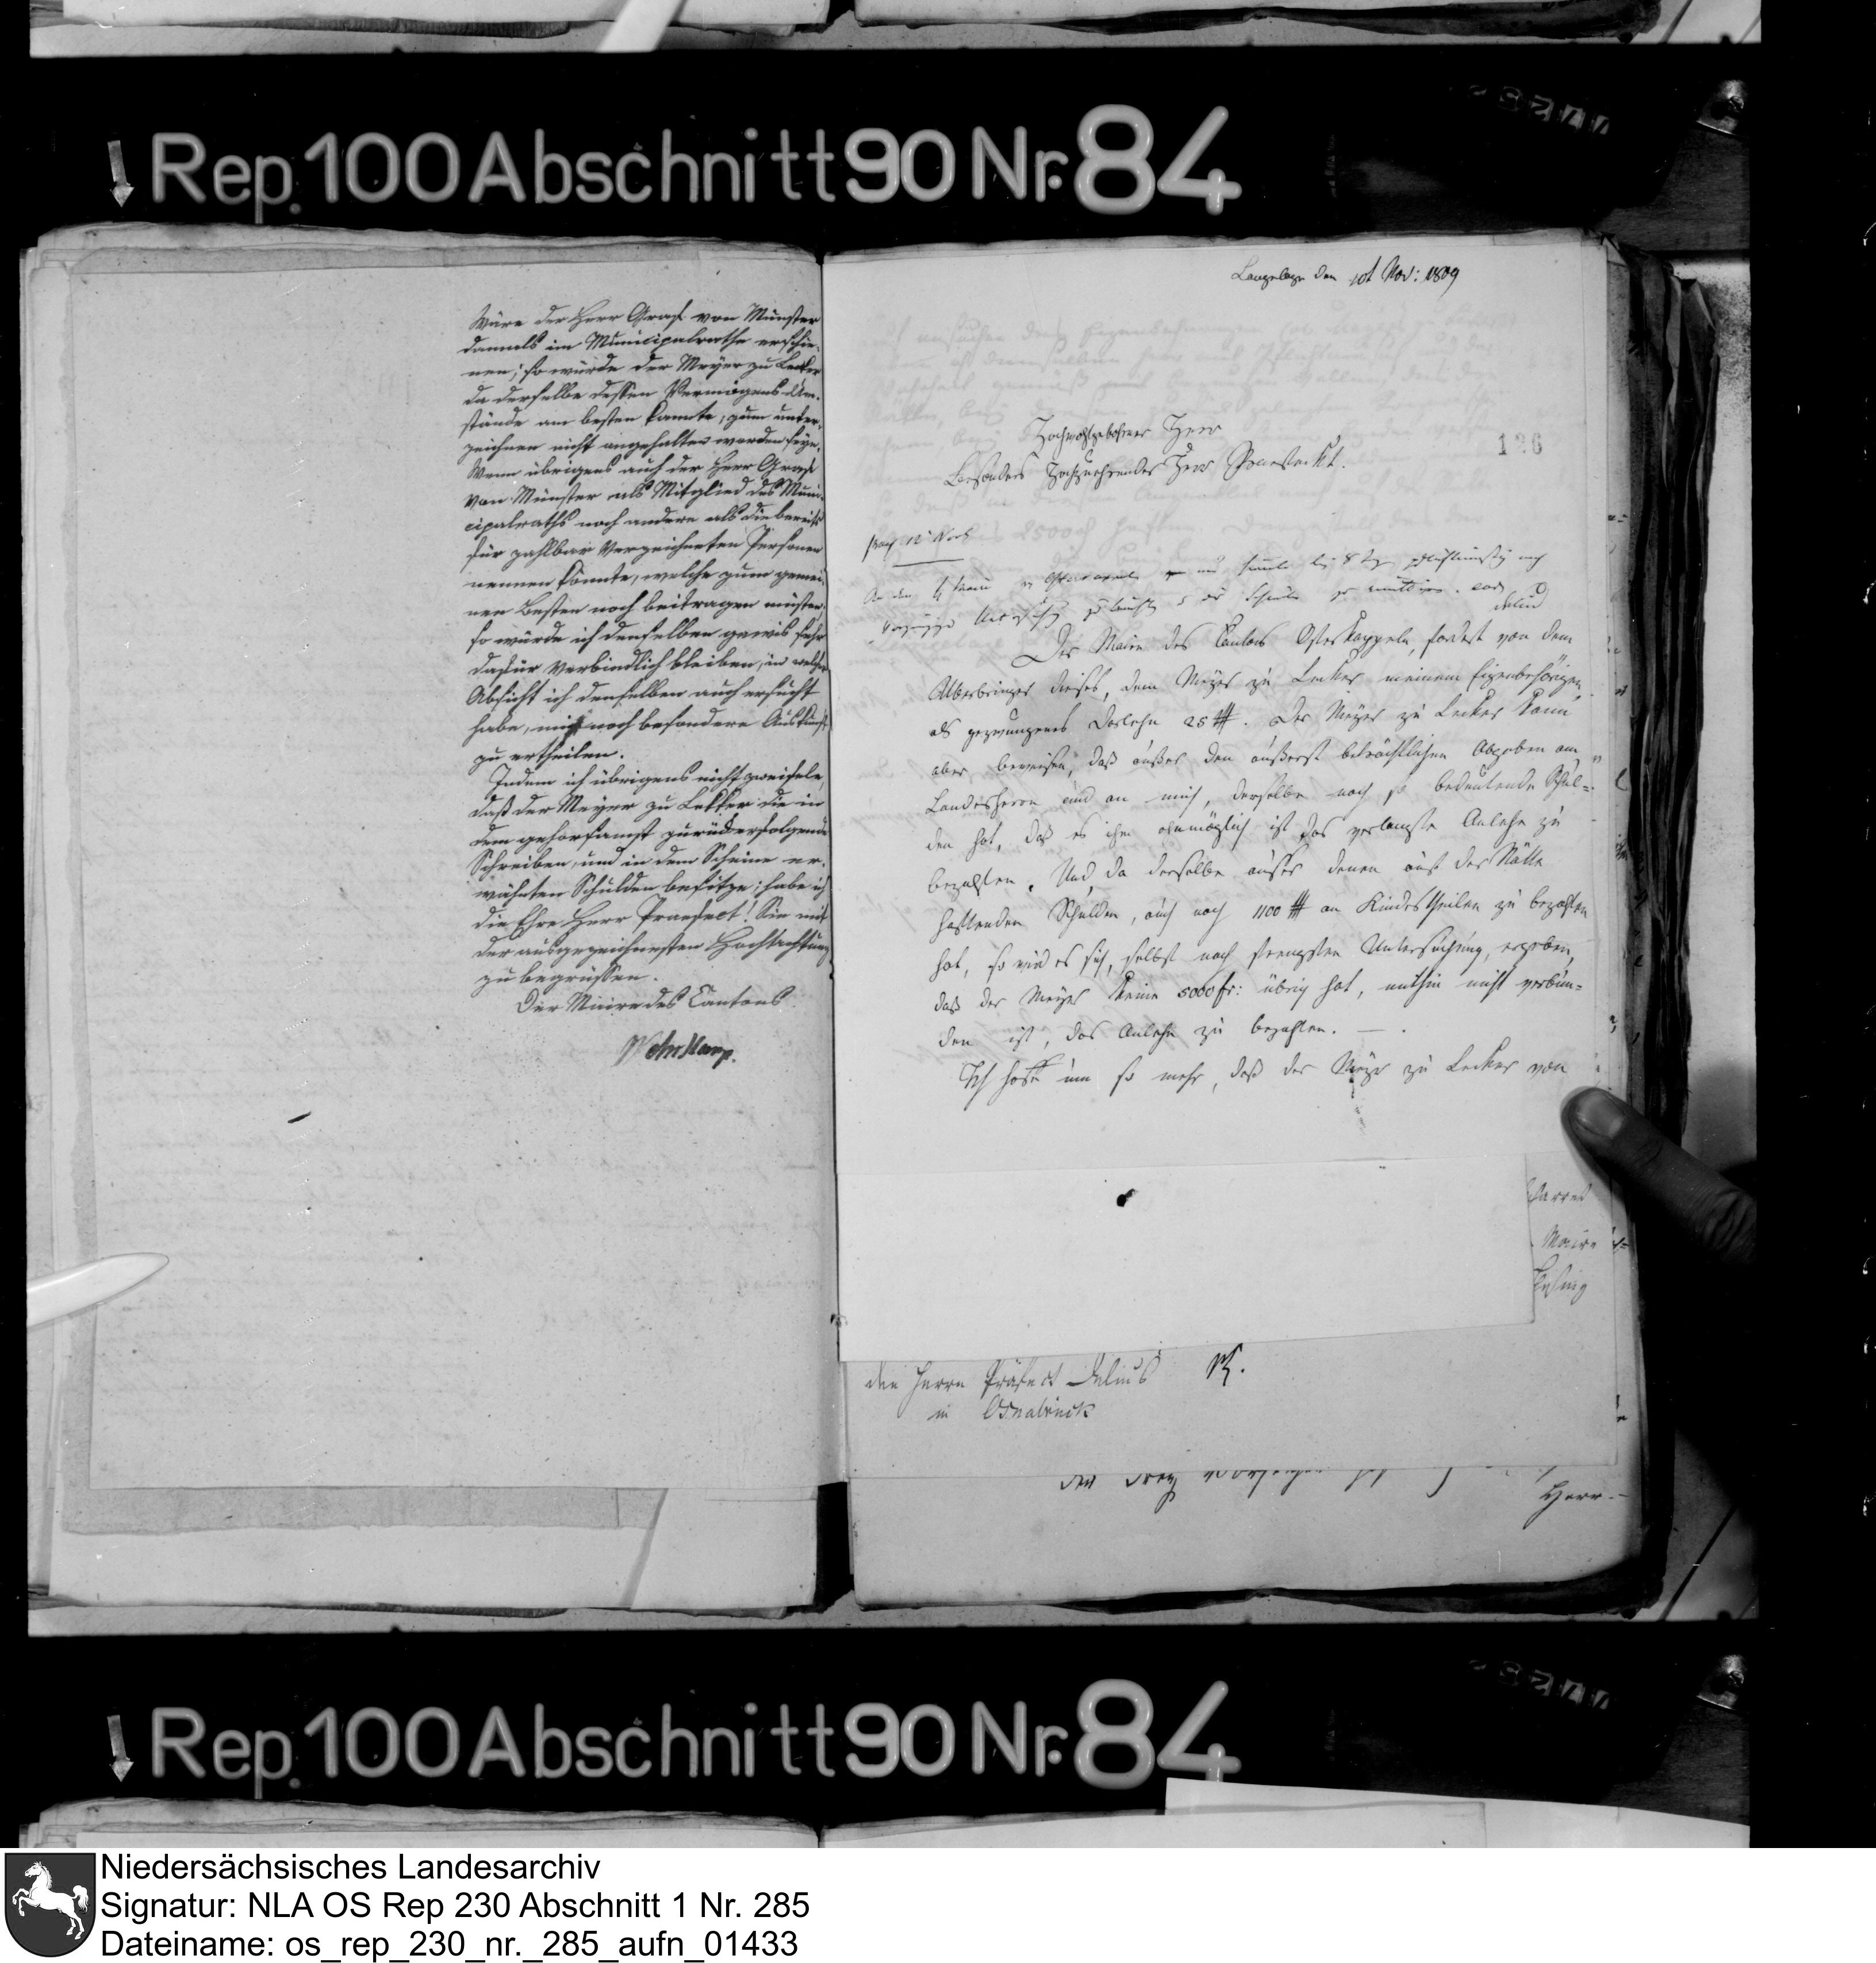 Rep. 100 Abschnitt 90 Nr. 84
Wäre der Herr Graf von Münster
damals im Municipalrathe erschie-
nen; so würde der Meyer zu Lecker
da derselbe dessen Vermögens Um-
stände am besten kannte, zum unter-
zeichnen nicht angehalten worden seyn.
Wenn übrigens auch der Herr Graf
von Münster als Mitglied des Muni-
cipalraths noch andere als die bereits
für zahlbar verzeichneten Personen
nennen könnte, welche zum gemei-
nen Besten noch beitragen müsten;
so würde ich denselben gewis sehr
dafür verbindlich bleiben, in welcher
Absicht ich denselben auch ersucht
habe, mir noch besondere Auskunft
zu ertheilen.
Indem ich übrigens nicht zweifele,
daß der Meyer zu Lekker die in
dem gehorsamst zurückerfolgende
Schreiben, und in dem Scheine er-
wähnten Schulden besitze; habe ich
die Ehre Herr Praefect! Sie mit
der ausgezeichnesten Hochachtung
zu begrüssen.
Der Maire des Cantons
Langelage den 10t Nov: 1809
Hochwohlgebohrner Herr
Besonders Hochzuehrender Herr Praefeckt.
126
Der Maire des Cantons Ostercappeln, fordert von dem
Ueberbringer dieses, dem Meyer zu Lecker meinem Eigenbehörigen
als gezwungenes Darlehn 25 . Der Meyer zu Lecker kann
aber beweisen, daß außer den äußerst beträchtlichen Abgaben am
Landesherrn und an mich, derselbe noch so bedeutende Schul=
den hat, daß es ihm ohnmöglich ist das verlangte Anlehn zu
bezahlen. Und da derselbe außer denen auf der Stätte
haftenden Schulden, auch noch 1100 an Kindestheilen zu bezahlen
hat, so wird es sich, selbst nach strengsten Untersuchung, ergeben,
daß der Meyer keine 5000 fr: übrig hat, mithin nicht verbun=
den ist, das Anlehn zu bezahlen. —
Ich hoffe um so mehr, daß der Meyer zu Lecker von
Maire
den Herrn Präfect Delius
in Osnabrück
Herr
Rep. 100 Abschnitt 90 Nr. 84
Niedersächsisches Landesarchiv
Signatur: NLA OS Rep 230 Abschnitt 1 Nr. 285
Dateiname: os_rep_230_nr._285_aufn_01433